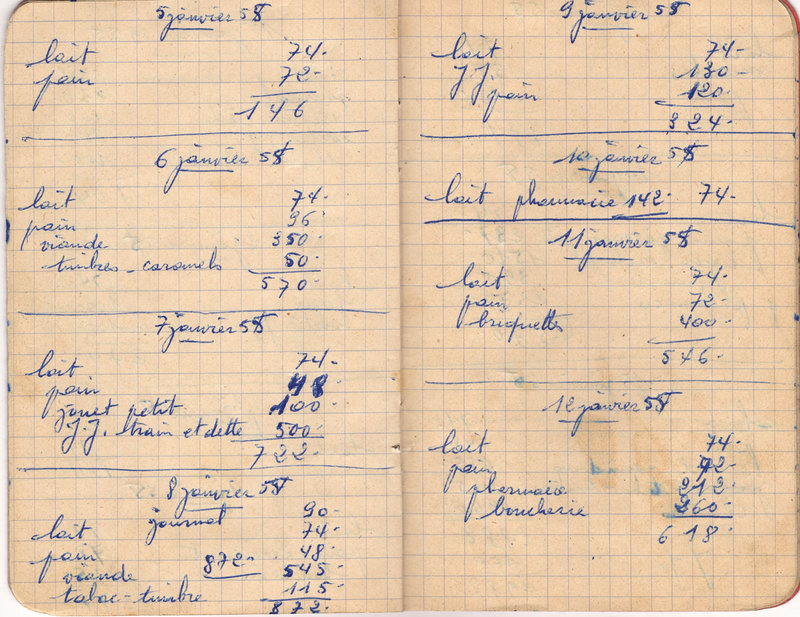 5 janvier 58
lait 74-
pain 72-
146
6 janvier 58
lait 74-
pain 96-
viande 350-
timbres-caramels 50-
570-
7 janvier 58
lait 74-
pain 48-
jouet petit 100-
J.J. train et dette 500-
722-
8 janvier 58
journal 90-
lait 74-
pain 48-
viande 872- 545-
tabac-timbre 115-
872-
9 janvier 58
lait 74-
J.J. 130-
pain 120-
324-
10 janvier 58
lait pharmacie 142- 74-
11 janvier 58
lait 74-
pain 72-
briquettes 400-
546-
12 janvier 58
lait 74-
pain 72-
pharmacie 212-
boucherie 260-
618-